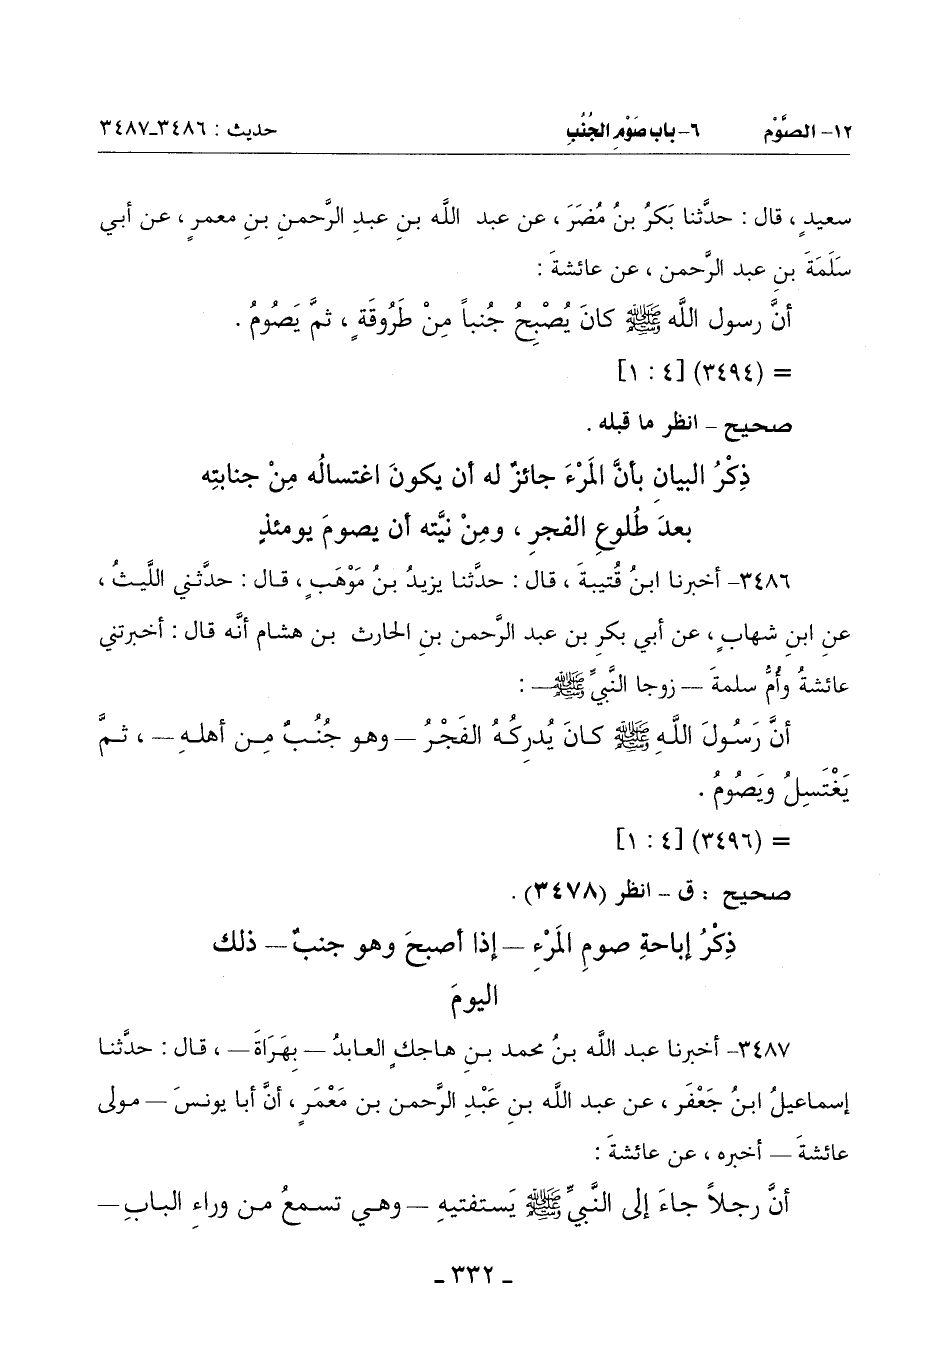 ١٢- الصَّوْم ٦- باب صَوْمِ الجُنُبِ حديث : ٣٤٨٦-٣٤٨٧
سعيدٍ ، قال : حدَّثنا بَكرُ بنُ مُضَرَ ، عن عبد اللَّه بنِ عبدِ الرَّحمنِ بنِ معمرٍ ، عن أبي
سَلَمَةَ بنِ عبد الرَّحمن ، عن عائشةَ :
أنَّ رسول اللَّه ﷺ كانَ يُصْبِحُ جُنباً مِنْ طَرُوقَةٍ ، ثمَّ يَصُومُ .
= (٣٤٩٤) [٤ : ١]
صحيح - انظر ما قبله .
ذِكْرُ البيان بأنَّ المَرْءَ جائزٌ له أن يكونَ اغتسالُه مِنْ جنابتِه
بعدَ طُلوعِ الفجرِ ، ومِنْ نيَّته أن يصومَ يومئذٍ
٣٤٨٦- أخبرنا ابنُ قُتيبةَ ، قال : حدَّثنا يزيدُ بنُ مَوْهَبٍ ، قال : حدَّثني اللَّيثُ ،
عنِ ابنِ شهابٍ ، عن أبي بكرِ بن عبد الرَّحمن بنِ الحارث بنِ هشام أنَّه قال : أخبرتني
عائشةُ وأُمُّ سلمةَ — زوجا النَّبيِّ ﷺ — :
أنَّ رَسُولَ اللَّهِ ﷺ كانَ يُدرِكُهُ الفَجْرُ — وهو جُنُبٌ مِن أهلهِ — ، ثمَّ
يَغْتَسِلُ ويَصُومُ .
= (٣٤٩٦) [٤ : ١]
صحيح : ق - انظر (٣٤٧٨) .
ذِكْرُ إباحةِ صومِ المَرْءِ — إذا أصبحَ وهو جنبٌ — ذلك
اليومَ
٣٤٨٧- أخبرنا عبد اللَّه بنُ محمد بنِ هاجكٍ العابدُ — بِهَرَاةَ — ، قال : حدَّثنا
إسماعيلُ ابنُ جَعْفَر ، عن عبد اللَّه بنِ عَبْدِ الرَّحمن بن مَعْمَرٍ ، أنَّ أبا يونسَ — مولى
عائشةَ — أخبره ، عن عائشةَ :
أنَّ رجلاً جاءَ إلى النَّبيِّ ﷺ يَستفتيهِ — وهي تسمعُ من وراءِ البابِ —
- ٣٣٢ -